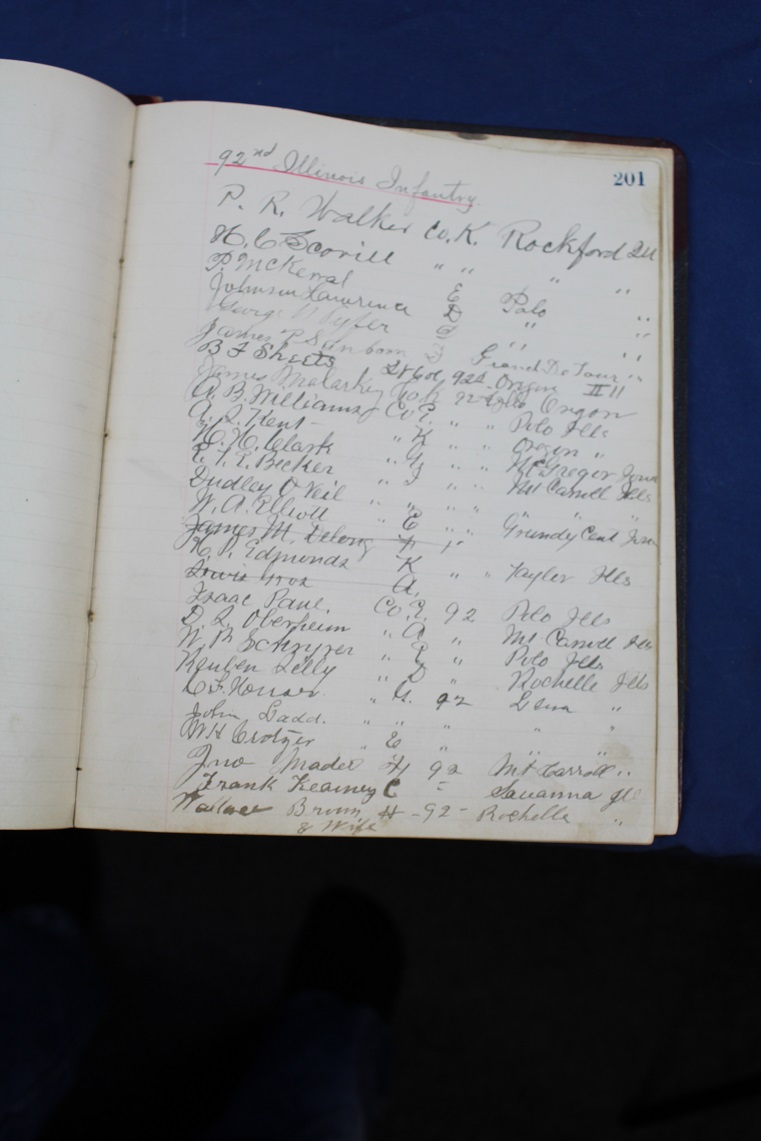 201
92nd Illinois Infantry.
P. R. Walker Co. K. Rockford Ill
H. C. Scovill " " " "
P. McKerral E Polo "
Johnson Lawrence D " "
George Pyfer " "
James P Sanborn Grand De Tour "
B F Sheets Lt Col 92d Oregon Ill
James Malarkey Co. K 92 Ills Oregon
A. B. Williams Co E. " " Polo Ills
A. S. Kent " K " " Oregon "
H. H. Clark " G " " McGregor Iowa
Becker " I " " Mt Carroll Ills
Dudley O Neil " " " " "
W. A. Elliott " E " " Grundy Cent Iowa
James M. Delong
H. P. Edmonds K " " Taylor Ills
Lewis A.
Isaac Paul. Co. E. 92 Polo Ills
D. S. Oberheim " A " Mt Carroll Ills
W. B Schryver " E " Polo Ills
Reuben Lilly " D " Rochelle Ills
" G. 92 Lena "
John Ladd. " " " " "
W H Crotzer " E "
Jno Mader H 92 Mt Carroll "
Frank Kearney C " Savanna Ill
Wallace Brown H - 92 - Rochelle "
& Wife